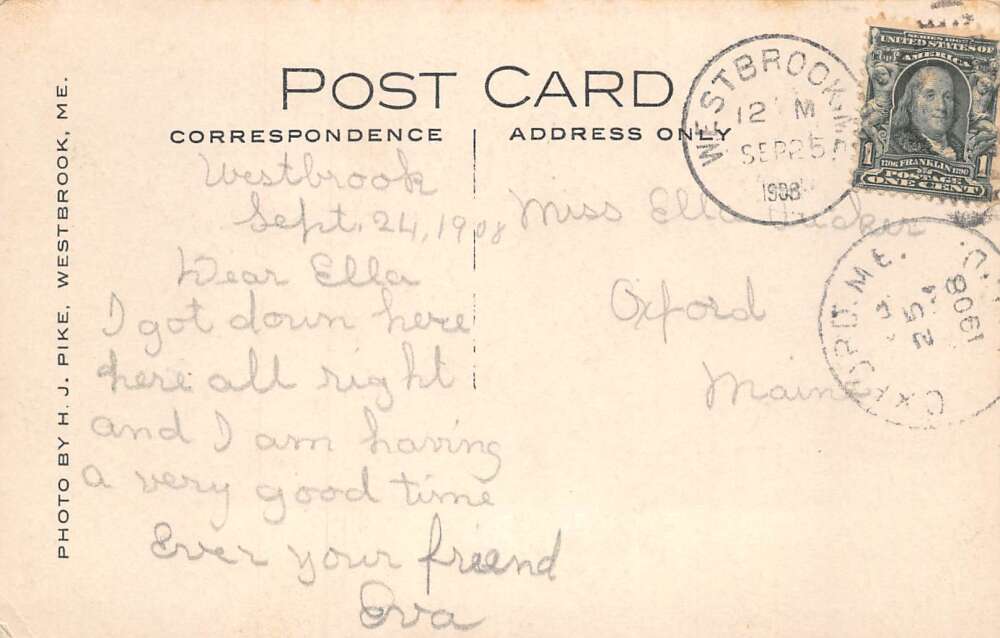 POST CARD
CORRESPONDENCE
ADDRESS ONLY
PHOTO BY H. J. PIKE, WESTBROOK, ME.
Westbrook
Sept. 24, 1908
Dear Ella
I got down here
here all right
and I am having
a very good time
Ever your friend
Eva
Miss Ella
Oxford
Maine
WESTBROOK, ME.
12 M
SEP 25
1908
SERIES 1902
UNITED STATES OF
AMERICA
1706 FRANKLIN 1790
POSTAGE
1 1
ONE CENT
OXFORD, ME.
25
1908